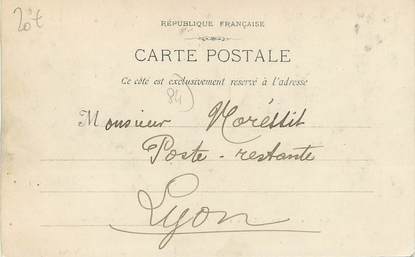 20€
RÉPUBLIQUE FRANÇAISE
CARTE POSTALE
Ce côté est exclusivement reservé à l'adresse
84
Monsieur
Poste-restante
Lyon